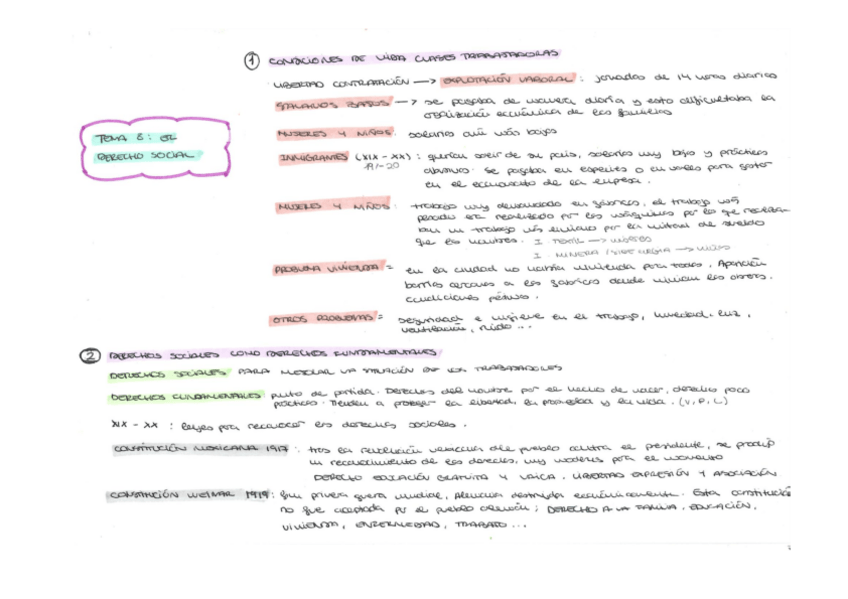 ① CONDICIONES DE VIDA CLASES TRABAJADORAS
LIBERTAD CONTRATACIÓN —> EXPLOTACIÓN LABORAL : jornadas de 14 horas diarias
SALARIOS BAJOS —> se pagaba de manera diaria y esto dificultaba la
organización económica de las familias
MUJERES Y NIÑOS: salarios aún más bajos
TEMA 8: EL
DERECHO SOCIAL
INMIGRANTES (XIX - XX) : querían salir de su país, salarios muy bajos y prácticas
19/-20
abusivas. Se pagaba en especies o en vales para gastar
en el economato de la empresa.
MUJERES Y NIÑOS: trabajo muy demandado en fábricas, el trabajo más
pesado era realizado por las máquinas por lo que realiza-
ban un trabajo más liviano por la mitad de sueldo
que los hombres. I. TEXTIL —> MUJERES
I. MINERA / SIDERURGIA —> NIÑOS
PROBLEMA VIVIENDA = en la ciudad no había vivienda para todos. Aparición
barrios cercanos a las fábricas donde vivían los obreros.
Condiciones pésimas.
OTROS PROBLEMAS = seguridad e higiene en el trabajo, humedad, luz,
ventilación, ruido ...
② DERECHOS SOCIALES COMO DERECHOS FUNDAMENTALES
DERECHOS SOCIALES PARA MEJORAR LA SITUACIÓN DE LOS TRABAJADORES
DERECHOS FUNDAMENTALES punto de partida. Derechos del hombre por el hecho de nacer, derechos poco
prácticos. Tienden a proteger la libertad, la propiedad y la vida. (V, P, L)
XIX - XX : leyes para reconocer los derechos sociales.
CONSTITUCIÓN MEXICANA 1917 : tras la revolución mexicana del pueblo contra el presidente, se produjo
un reconocimiento de los derechos, muy moderna para el momento
DERECHO EDUCACIÓN GRATUITA Y LAICA, LIBERTAD EXPRESIÓN Y ASOCIACIÓN
CONSTITUCIÓN WEIMAR 1919 : fin primera guerra mundial, Alemania destruida económicamente. Esta constitución
no fue aceptada por el pueblo alemán ; DERECHO A LA FAMILIA, EDUCACIÓN,
VIVIENDA, ENFERMEDAD, TRABAJO ...